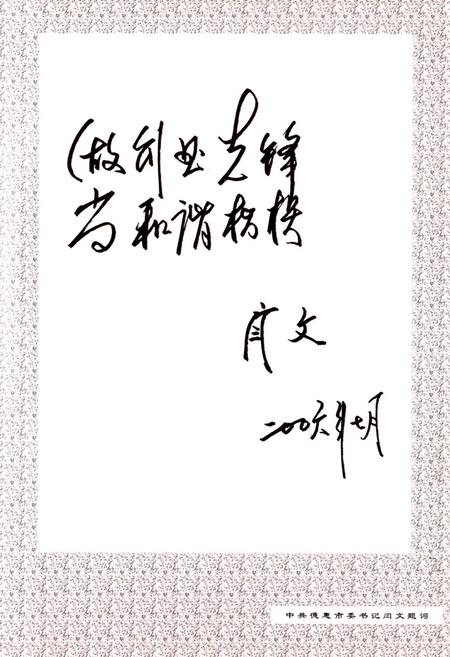 做创业先锋
当和谐楷模
闫文
二〇〇六年七月
中共德惠市委书记闫文题词